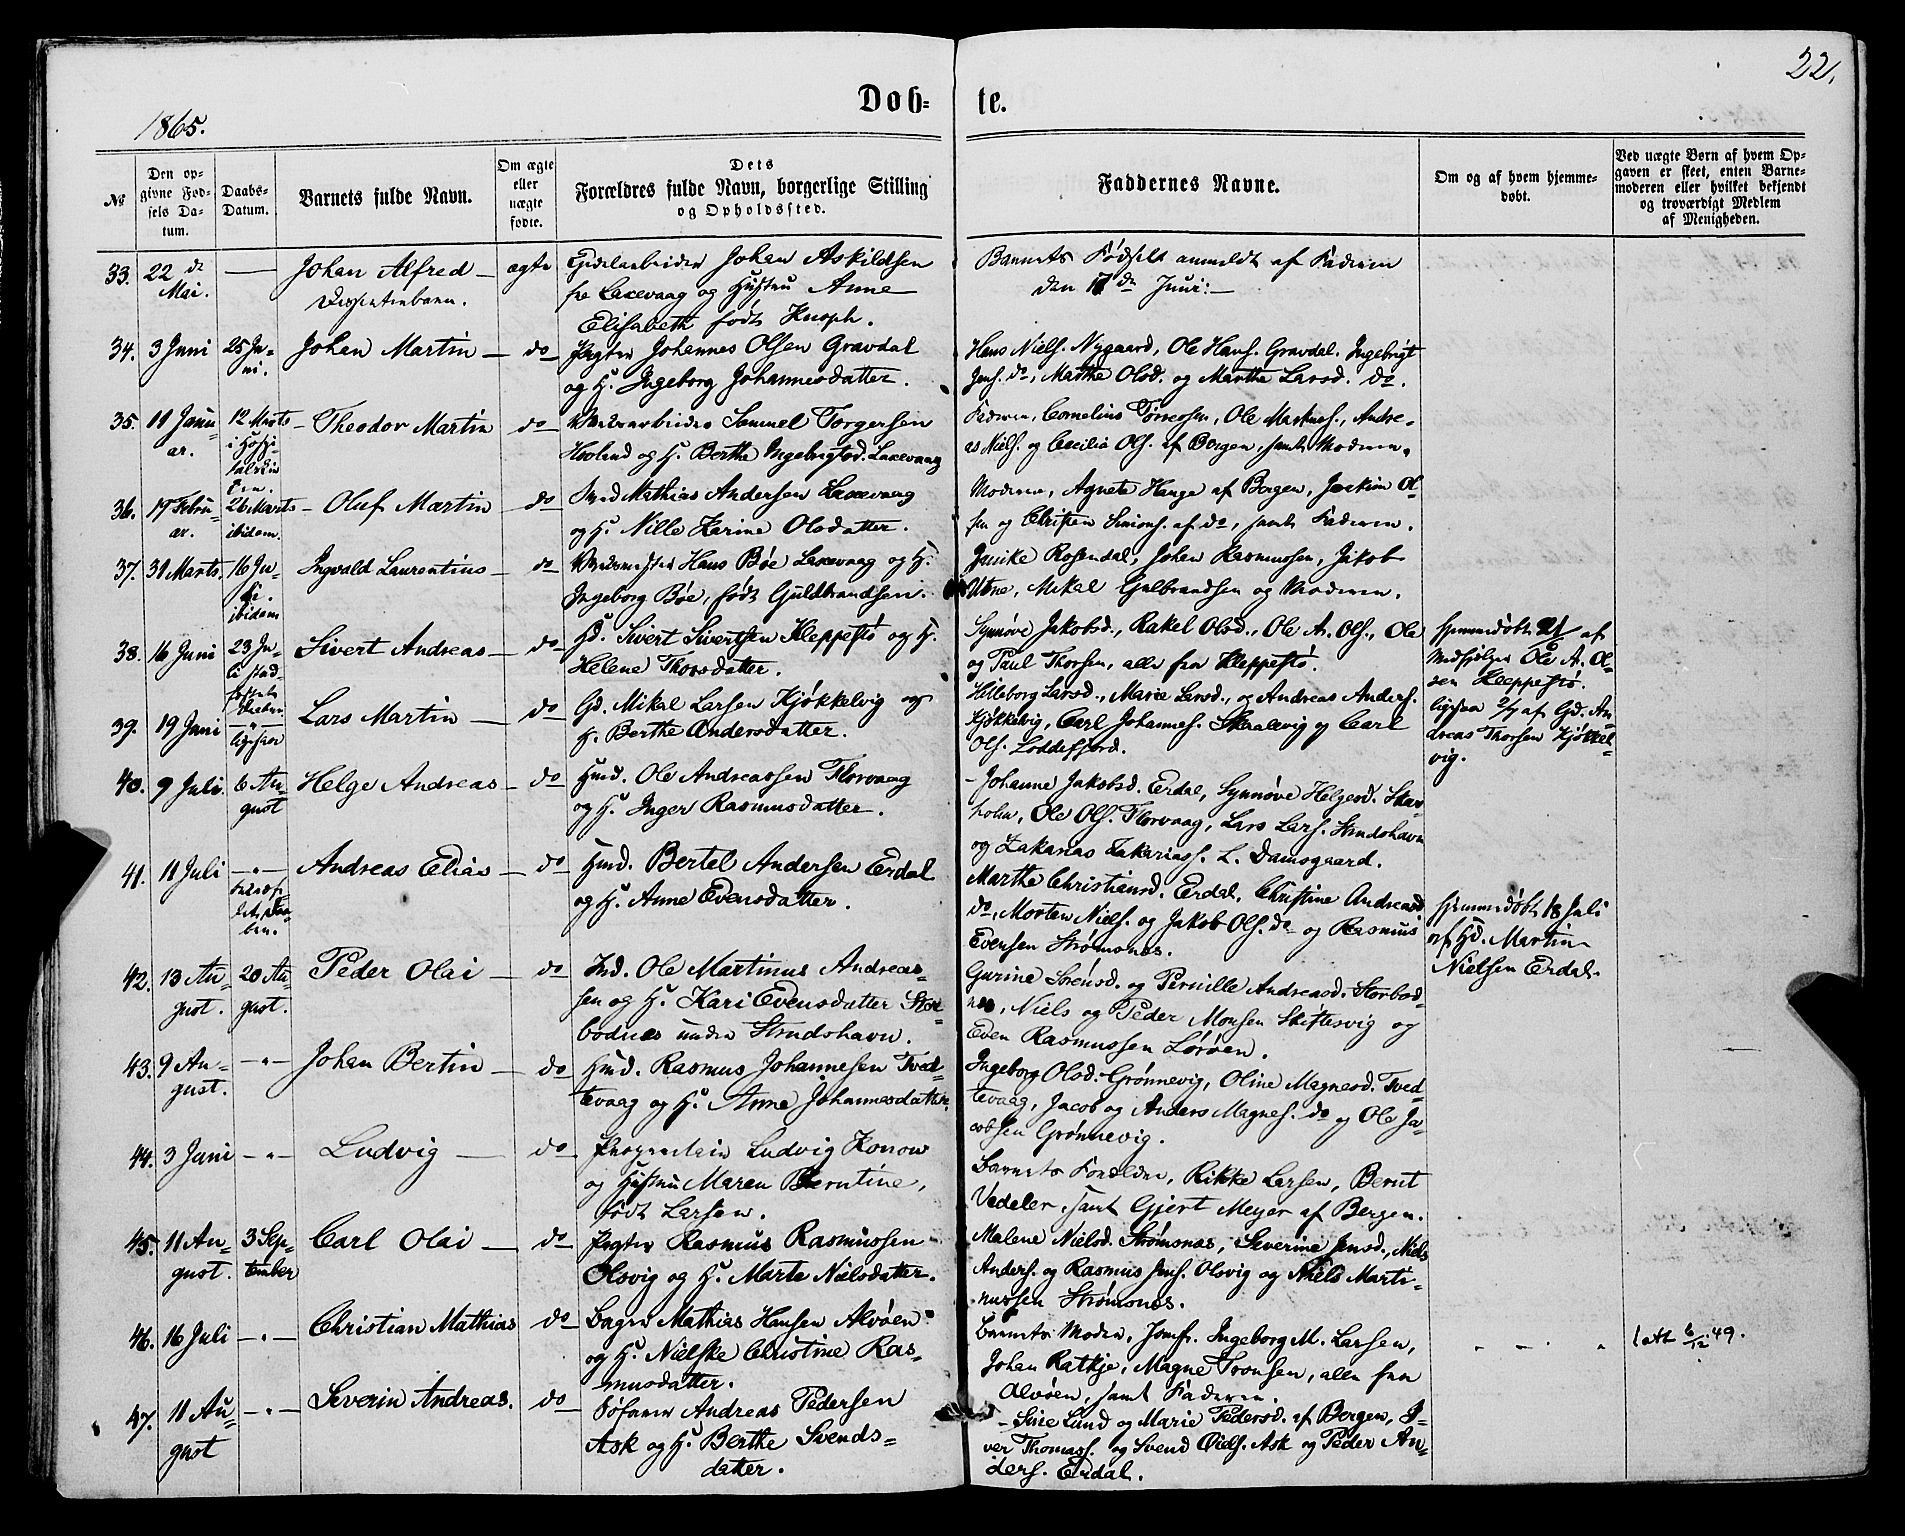 22,
Døb-
te.
1865.
№
Den op-
givne Fød-
sels Da-
tum.
Daabs-
Datum.
Barnets fulde Navn.
Om ægte
eller
uægte
fødte.
Dets
Forældres fulde Navn, borgerlige Stilling
og Opholdssted.
Faddernes Navne.
Om og af hvem hjemme-
døbt.
Ved uægte Børn af hvem Op-
gaven er skeet, enten Barne-
moderen eller hvilket bekjendt
og troværdigt Medlem
af Menigheden.
33. 22 de
Mai.
Johan Alfred
Dissenterbarn.
ægte
Johan Askildsen
fra Laxevaag og Hustru Anne
Elisabeth født Knoph.
Barnets Fødsel anmeldt af Faderen
den 17 de Juni:
34. 3 Juni
25 Ju-
ni.
Johan Martin
do
Pagter Johannes Olsen Gravdal
og H. Ingeborg Johannesdatter.
Hans Niels. Nygaard, Ole Hans. Gravdal, Ingebrigt
Jens. do, Marthe Olsd. og Marthe Larsd. do.
35. 11 Janu-
ar.
12 Marts
i Hospi-
talskir
ken.
Theodor Martin
do
Værksarbeider Samuel Torgersen
Hovland og H. Berthe Ingebrigtsd. Laxevaag
Faderen, Cornelius Tørresen, Ole Martines., Andre-
as Niels. og Cecilia Ols. af Bergen, samt Moderen.
36. 19 Febru-
ar.
26 Marts
ibidem.
Oluf Martin
do
Smed Mathias Andersen Laxevaag
og H. Nille Karine Olsdatter.
Moderen, Agnete Hauge af Bergen, Joakim Ol-
sen og Christen Simons. af do, samt Faderen.
37. 31 Marts
16 Ju-
li.
ibidem
Ingvald Laurentius
do
Værkmester Hans Bøe Laxevaag og H.
Ingeborg Bøe, født Guldbrandsen.
Rosendal, Johan Rasmussen, Jakob
Utne, Mikal Gulbrandsen og Moderen.
38. 16 Juni
23 Ju-
li
Sivert Andreas
do
Gd. Sivert Sivertsen Kleppestø og H.
Helene Thorsdatter.
Synnøve Jakobsd., Rakel Olsd., Ole A. Ols., Ole
og Paul Thorsen, alle fra Kleppestø.
Hjemmedøbt af
Medhjælper Ole A. Ol-
sen Kleppestø.
39. 19 Juni
"
ligesaa
Lars Martin
do
Gd. Mikal Larsen Kjøkkelvig og
H. Berthe Andersdatter.
Helleborg Larsd., Marie Larsd., og Andreas Anders.
Kjøkkelvig, Carl Johannes. Skaalevig og Carl
Ols. Loddefjord.
ligesaa 2/7 af Gd. An-
dreas Thorsen Kjøkkel-
vig.
40. 9 Juli
6 Au-
gust
Helge Andreas
do
Hmd. Ole Andreassen Florvaag
og H. Inger Rasmusdatter.
Johanne Jakobsd. Erdal, Synnøve Helgesd. Skar-
holm, Ole Ols. Florvaag, Lars Lars. Strudshavn
og Zakarias Zakariass. L. Damsgaard.
41. 11 Juli
"
Andreas Elias
do
Hmd. Bertel Andersen Erdal
og H. Anne Evensdatter.
Marthe Christiansd. Erdal, Christine Andreasd
do, Morten Niels. og Jakob Ols. do og Rasmus
Evensen Strømsnæs.
Hjemmedøbt 18 Juli
af Gd. Martin
Nielsen Erdal.
42. 13 Au-
gust.
20 Au-
gust.
Peder Olai
do
Ind. Ole Martinus Andreas-
sen og H. Kari Evensdatter Stor-
bodnes under Strudshavn.
Gurine Sørensd. og Pernille Andreasd. Storbod-
nes, Niels og Peder Monsen Skiftesvig og
Even Rasmussen Lørøen.
43. 9 Au-
gust.
"
Johan Bertin
do
Hmd. Rasmus Johannesen Tved-
tevaag og H. Anne Johannesdatter.
Ingeborg Olsd. Grønnevig, Oline Magnesd. Tved-
tevaag, Jacob og Anders Magnes. do og Ole Ja-
cobsen Grønnevig.
44. 3 Juni
"
Ludvig
do
Proprietair Ludvig Konow
og Hustru Maren Berntine,
født Larsen.
Barnets Forældre, Rikke Larsen, Bernt
Vedeler, samt Gjert Meyer af Bergen.
45. 11 Au-
gust.
3 Sep-
tember
Carl Olai
do
Pagter Rasmus Rasmussen
Olsvig og H. Marte Nielsdatter.
Malene Nielsd. Strømsnæs, Severine Jensd., Niels
Anders. og Rasmus Jens. Olsvig og Niels Marti-
nussen Strømsnæs.
46. 16 Juli
"
Christian Mathias
do
Bager Mathias Hansen Alvøen
og H. Nielske Christine Ras-
musdatter.
Barnets Moder, Jomfr. Ingeborg M. Larsen,
Johan Ratkje, Magne Tronsen, alle fra
Alvøen, samt Faderen.
1 att 6/12 49.
47. 11 Au-
gust
"
Severin Andreas.
do
Sømand Andreas Pedersen
Ask og H. Berthe Svends-
datter.
Sine Lund og Marie Pedersd. af Bergen, I-
ver Thomass. og Svend Ask og Peder An-
ders. Erdal.